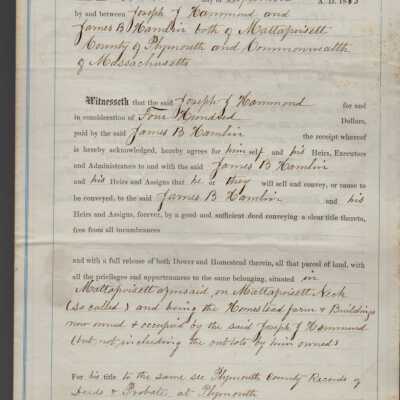 A. D. 18
by and between Joseph J Hammond and
James B Hamlin both of Mattapoisett
County of Plymouth and Commonwealth
of Massachusetts
Witnesseth that the said Joseph J Hammond for and
in consideration of Four Hundred Dollars,
paid by the said James B Hamlin the receipt whereof
is hereby acknowledged, hereby agrees for himself and his Heirs, Executors
and Administrators to and with the said James B Hamlin
and his Heirs and Assigns that he or they will sell and convey, or cause to
be conveyed, to the said James B Hamlin and his
Heirs and Assigns, forever, by a good and sufficient deed conveying a clear title thereto,
free from all incumbrances
and with a full release of both Dower and Homestead therein, all that parcel of land, with
all the privileges and appurtenances to the same belonging, situated in
Mattapoisett aforesaid on Mattapoisett Neck
(so called) and being the Homestead farm & Buildings
now owned & occupied by the said Joseph J Hammond
(but not including the outlots by him owned)
For his title to the same see Plymouth County Records of
Deeds & Probate, at Plymouth